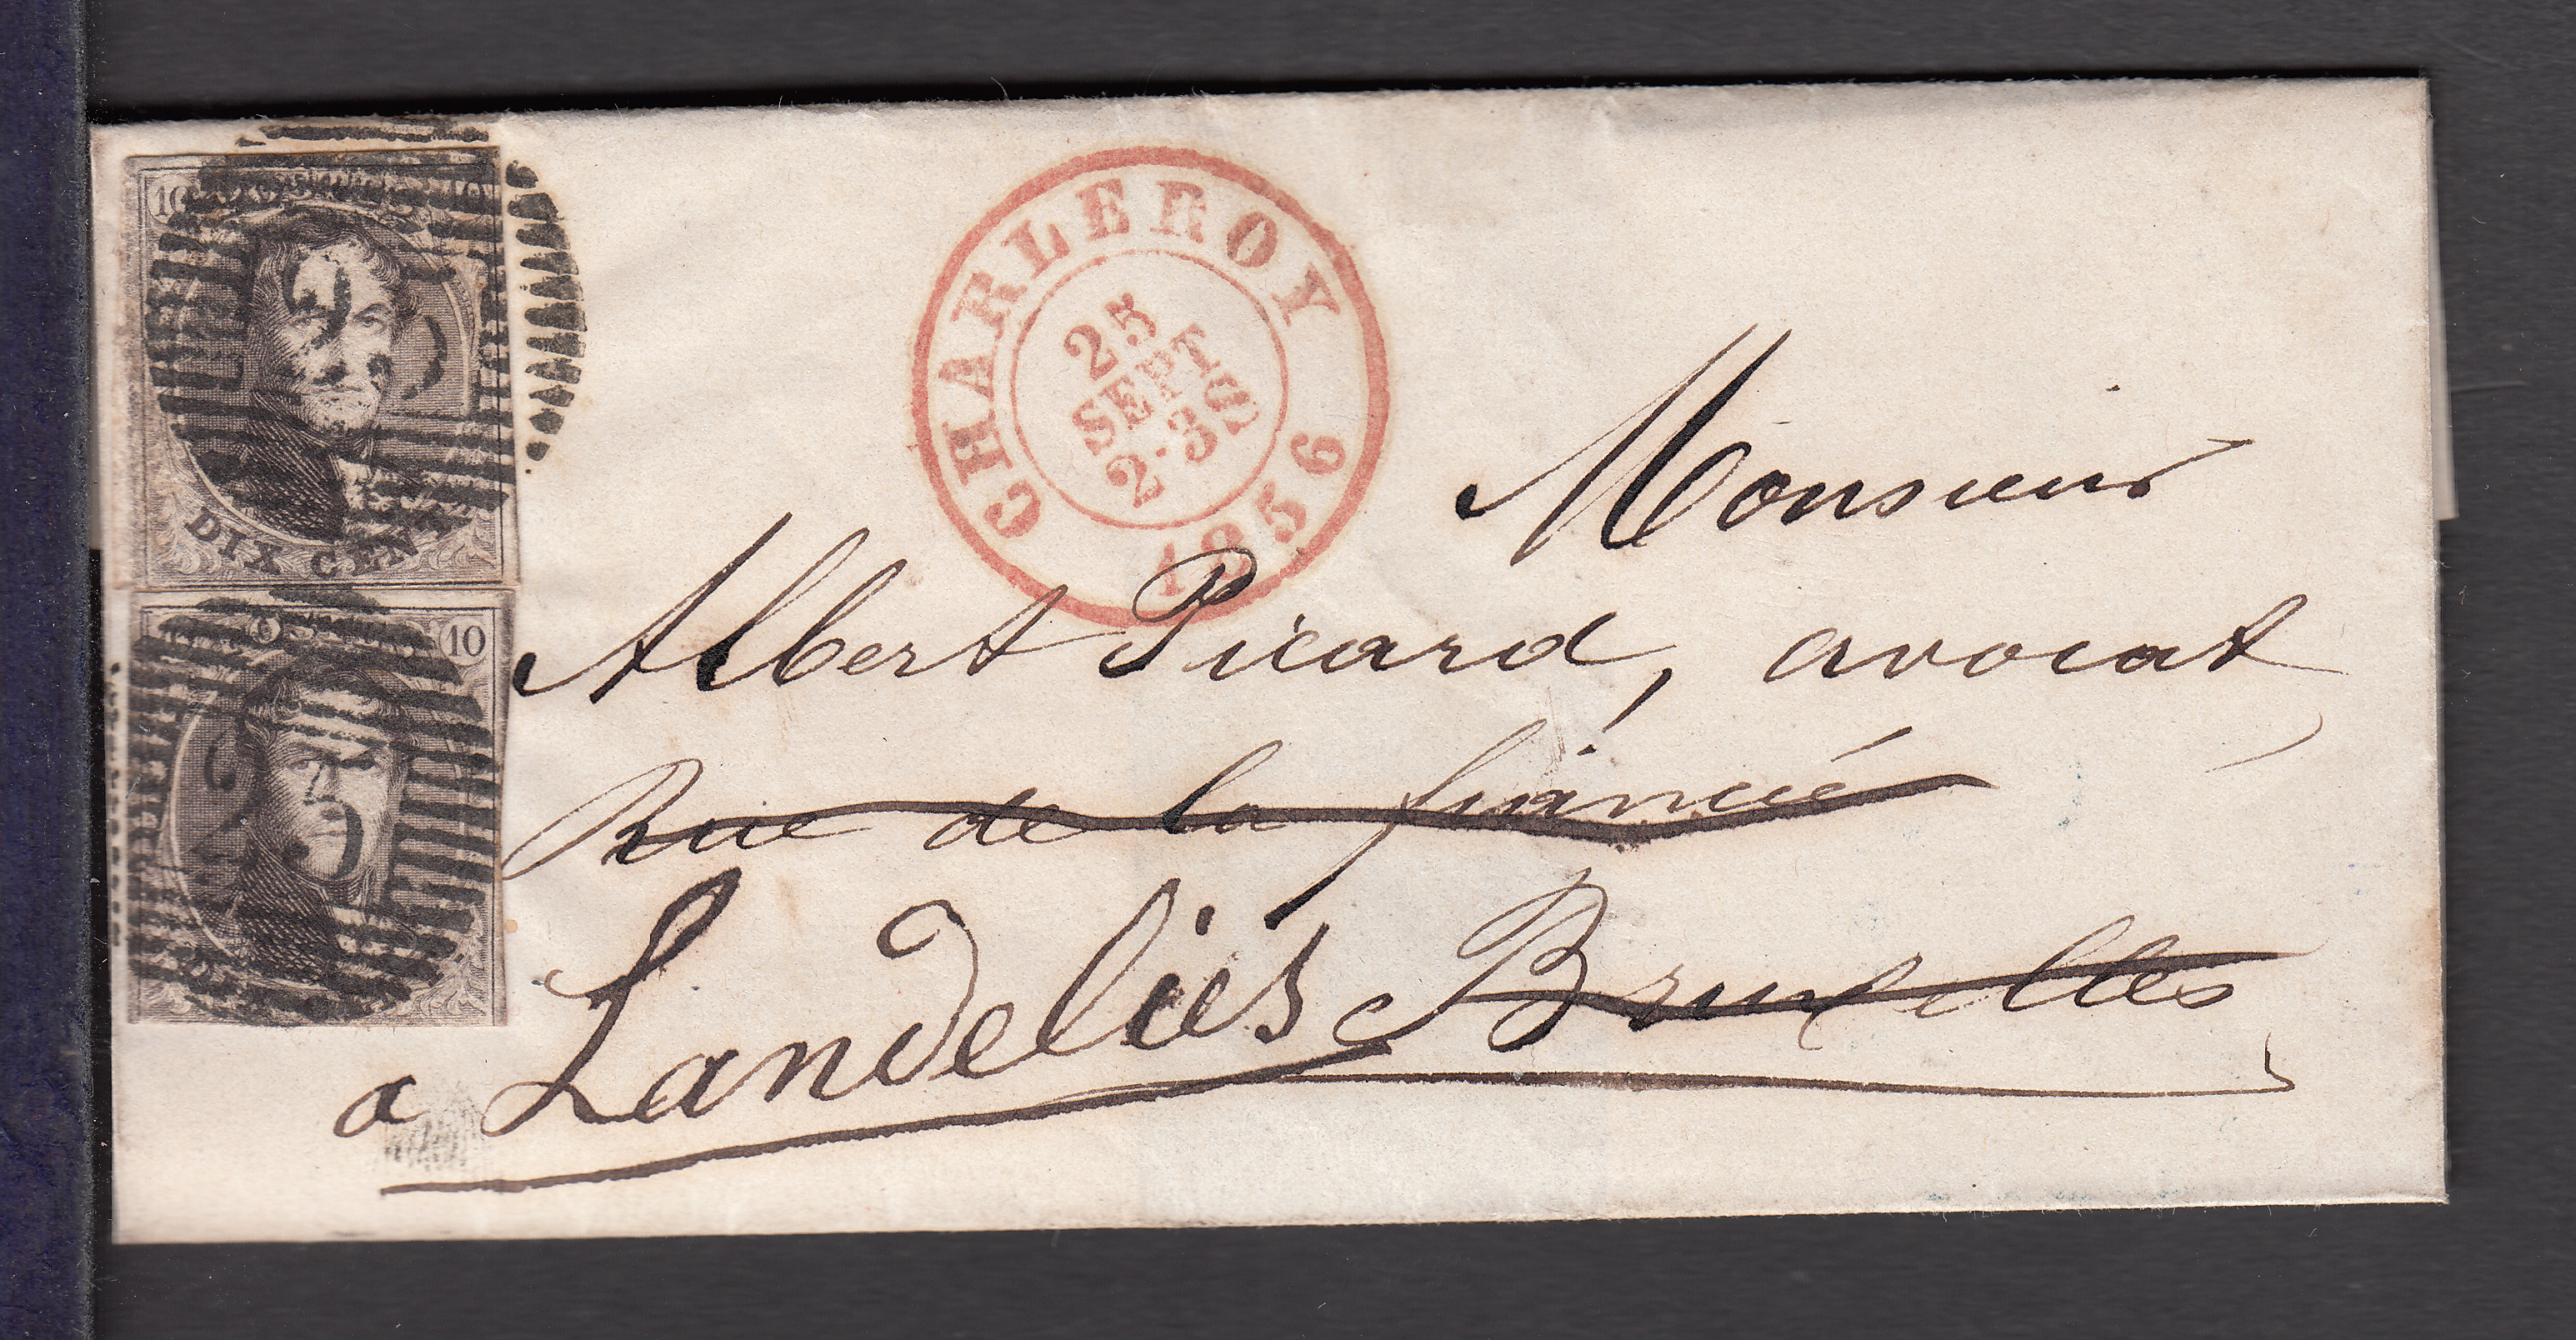 10
DIX CENT
10
CHARLEROY
25
SEPT
2·3S
1856
Monsieur
Albert Picard, avocat
Rue de la fiancée
a Landelies Bruxelles